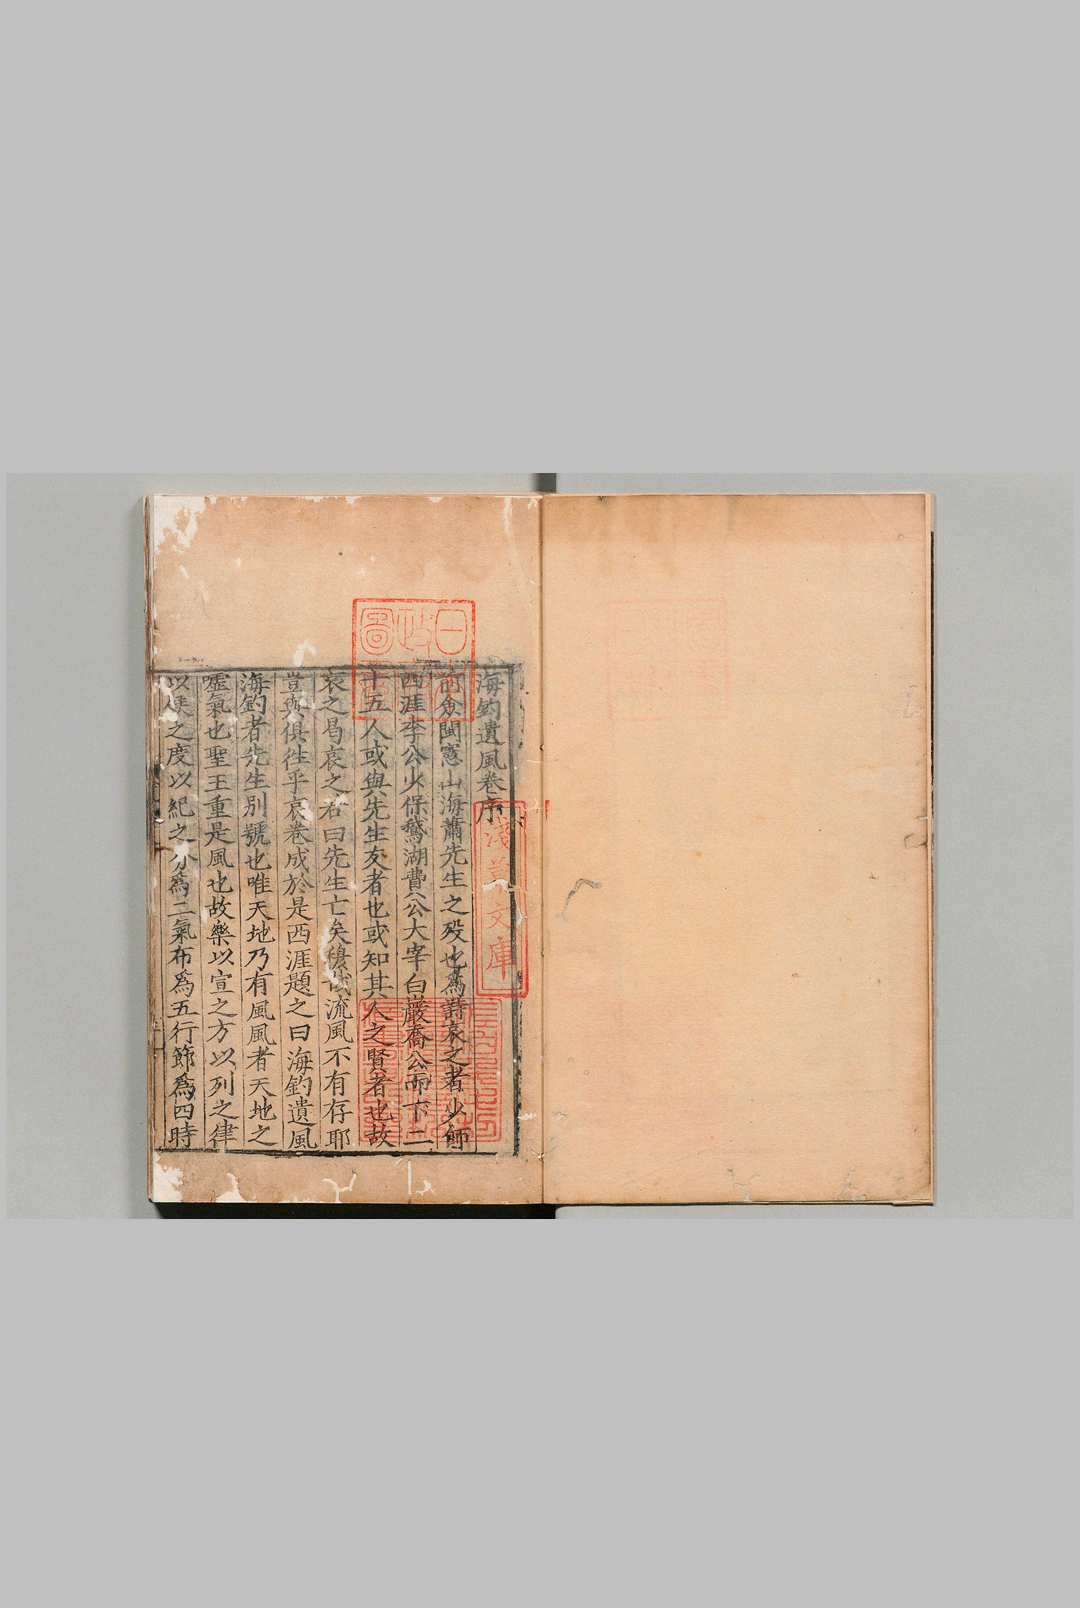 海釣遺風卷序
前僉閩憲山海蕭先生之歿也為詩哀之者少師
西涯李公少保鵝湖費公大宰白巖喬公而下二
十五人或與先生友者也或知其人之賢者也故
哀之曷哀之者曰先生亡矣穆哉流風不有存耶
豈與俱徃乎哀卷成於是西涯題之曰海釣遺風
海釣者先生別號也唯天地乃有風風者天地之
噓氣也聖王重是風也故樂以宣之方以列之律
以候之度以紀之分為二氣布為五行節為四時
日 政
圖
淺草文庫